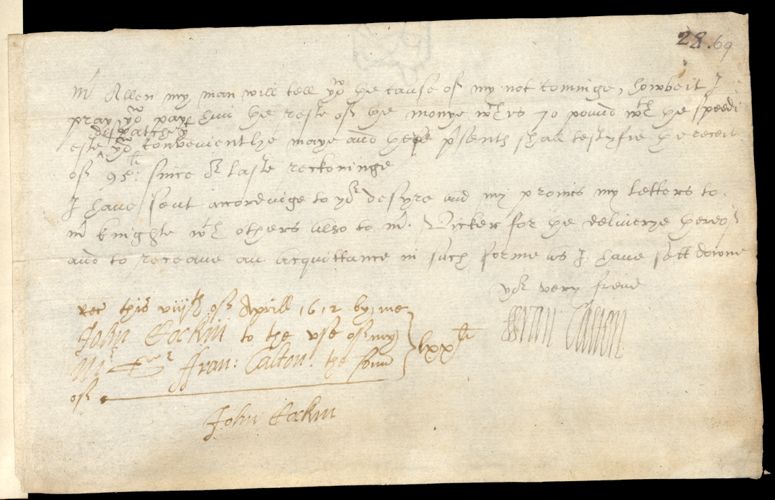 28. 69
mr Allen my man will tell yw the cause of my not cominge, howbeit I
pray yw pay him the reste of the monye wch is 70 pound wth the speedi
dispatche
este yw convenientlye maye and these psents shall testyfie the receit
of 95li since or laste reckoninge
I have sent accordinge to yor desyre and my promis my letters to
mr knighte wth others also to mr. Vicker for the deliverye hereof
and to receave an acquittance in such forme as I have sett downe
yor very frend
Fran Calton
Rec this viijth of Aprill 1612 by me
John Cockin to the use of my
Mr Fran: Calton the some
of lxxli
John Cockin